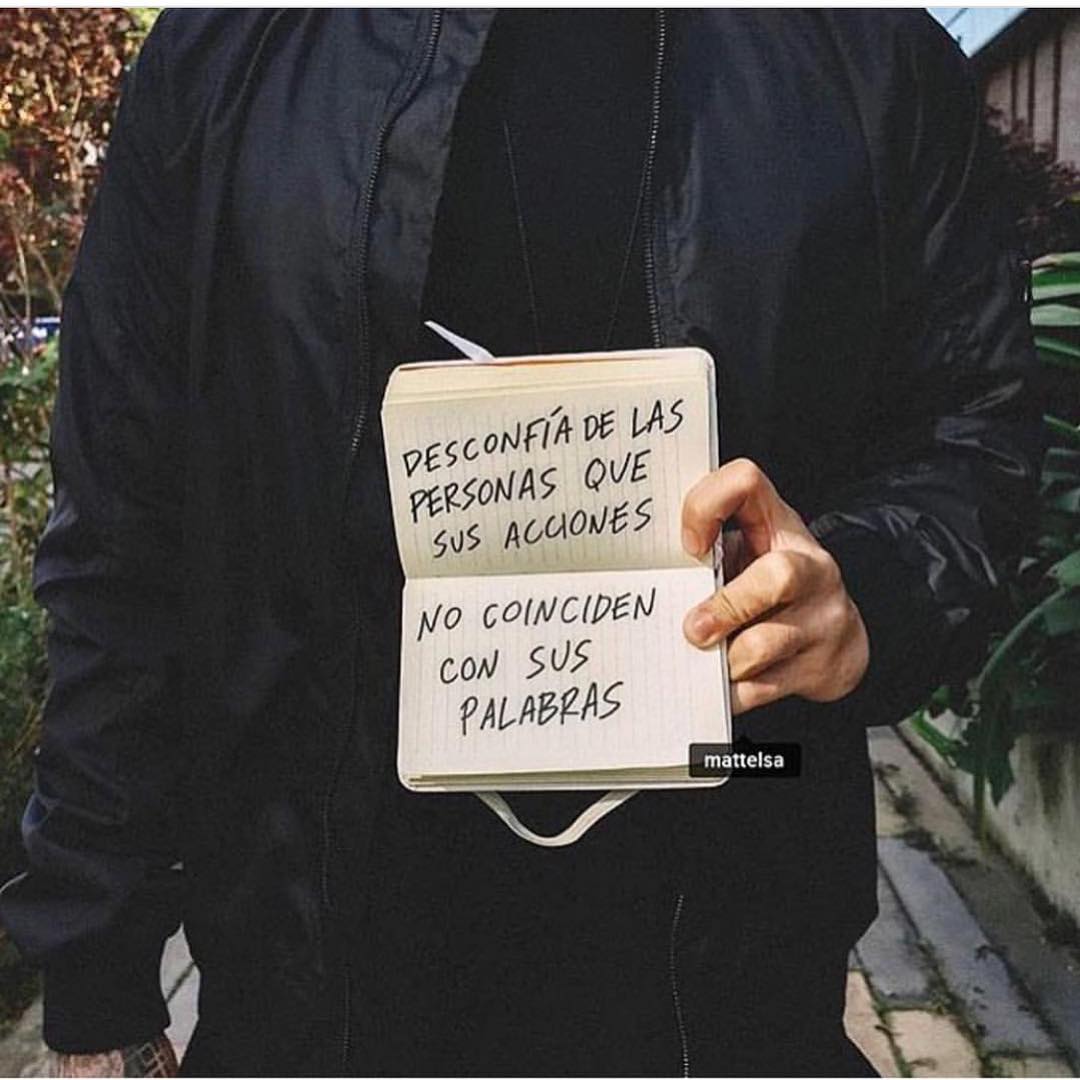 DESCONFÍA DE LAS
PERSONAS QUE
SUS ACCIONES
NO COINCIDEN
CON SUS
PALABRAS
mattelsa